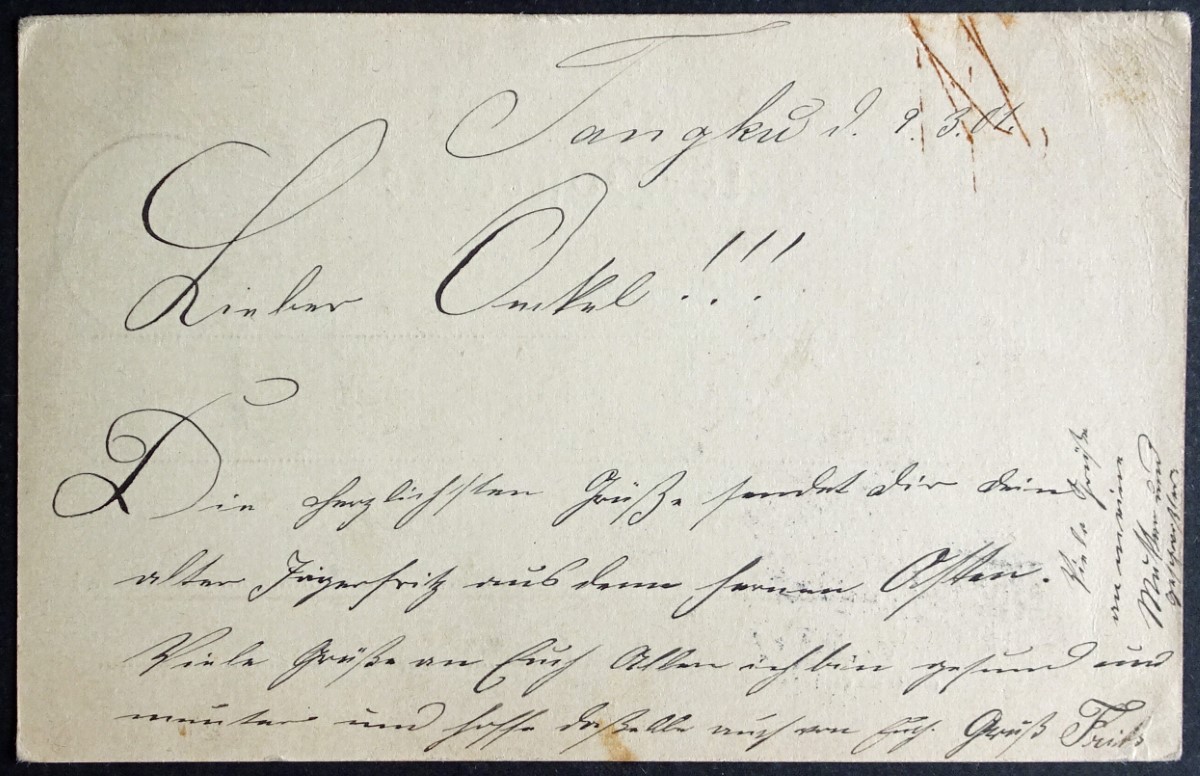 Tangku d. 9.3.01.
Lieber Onkel!!!
Die herzlichsten Grüße sendet dir dein
alter Jägerfritz aus dem fernen Osten.
Viele Grüße an Euch Allen ich bin gesund und
munter und hoffe daßelbe auch von Euch. Gruß Fritz
Viele Grüße
an meine
Mutter und
Geschwister